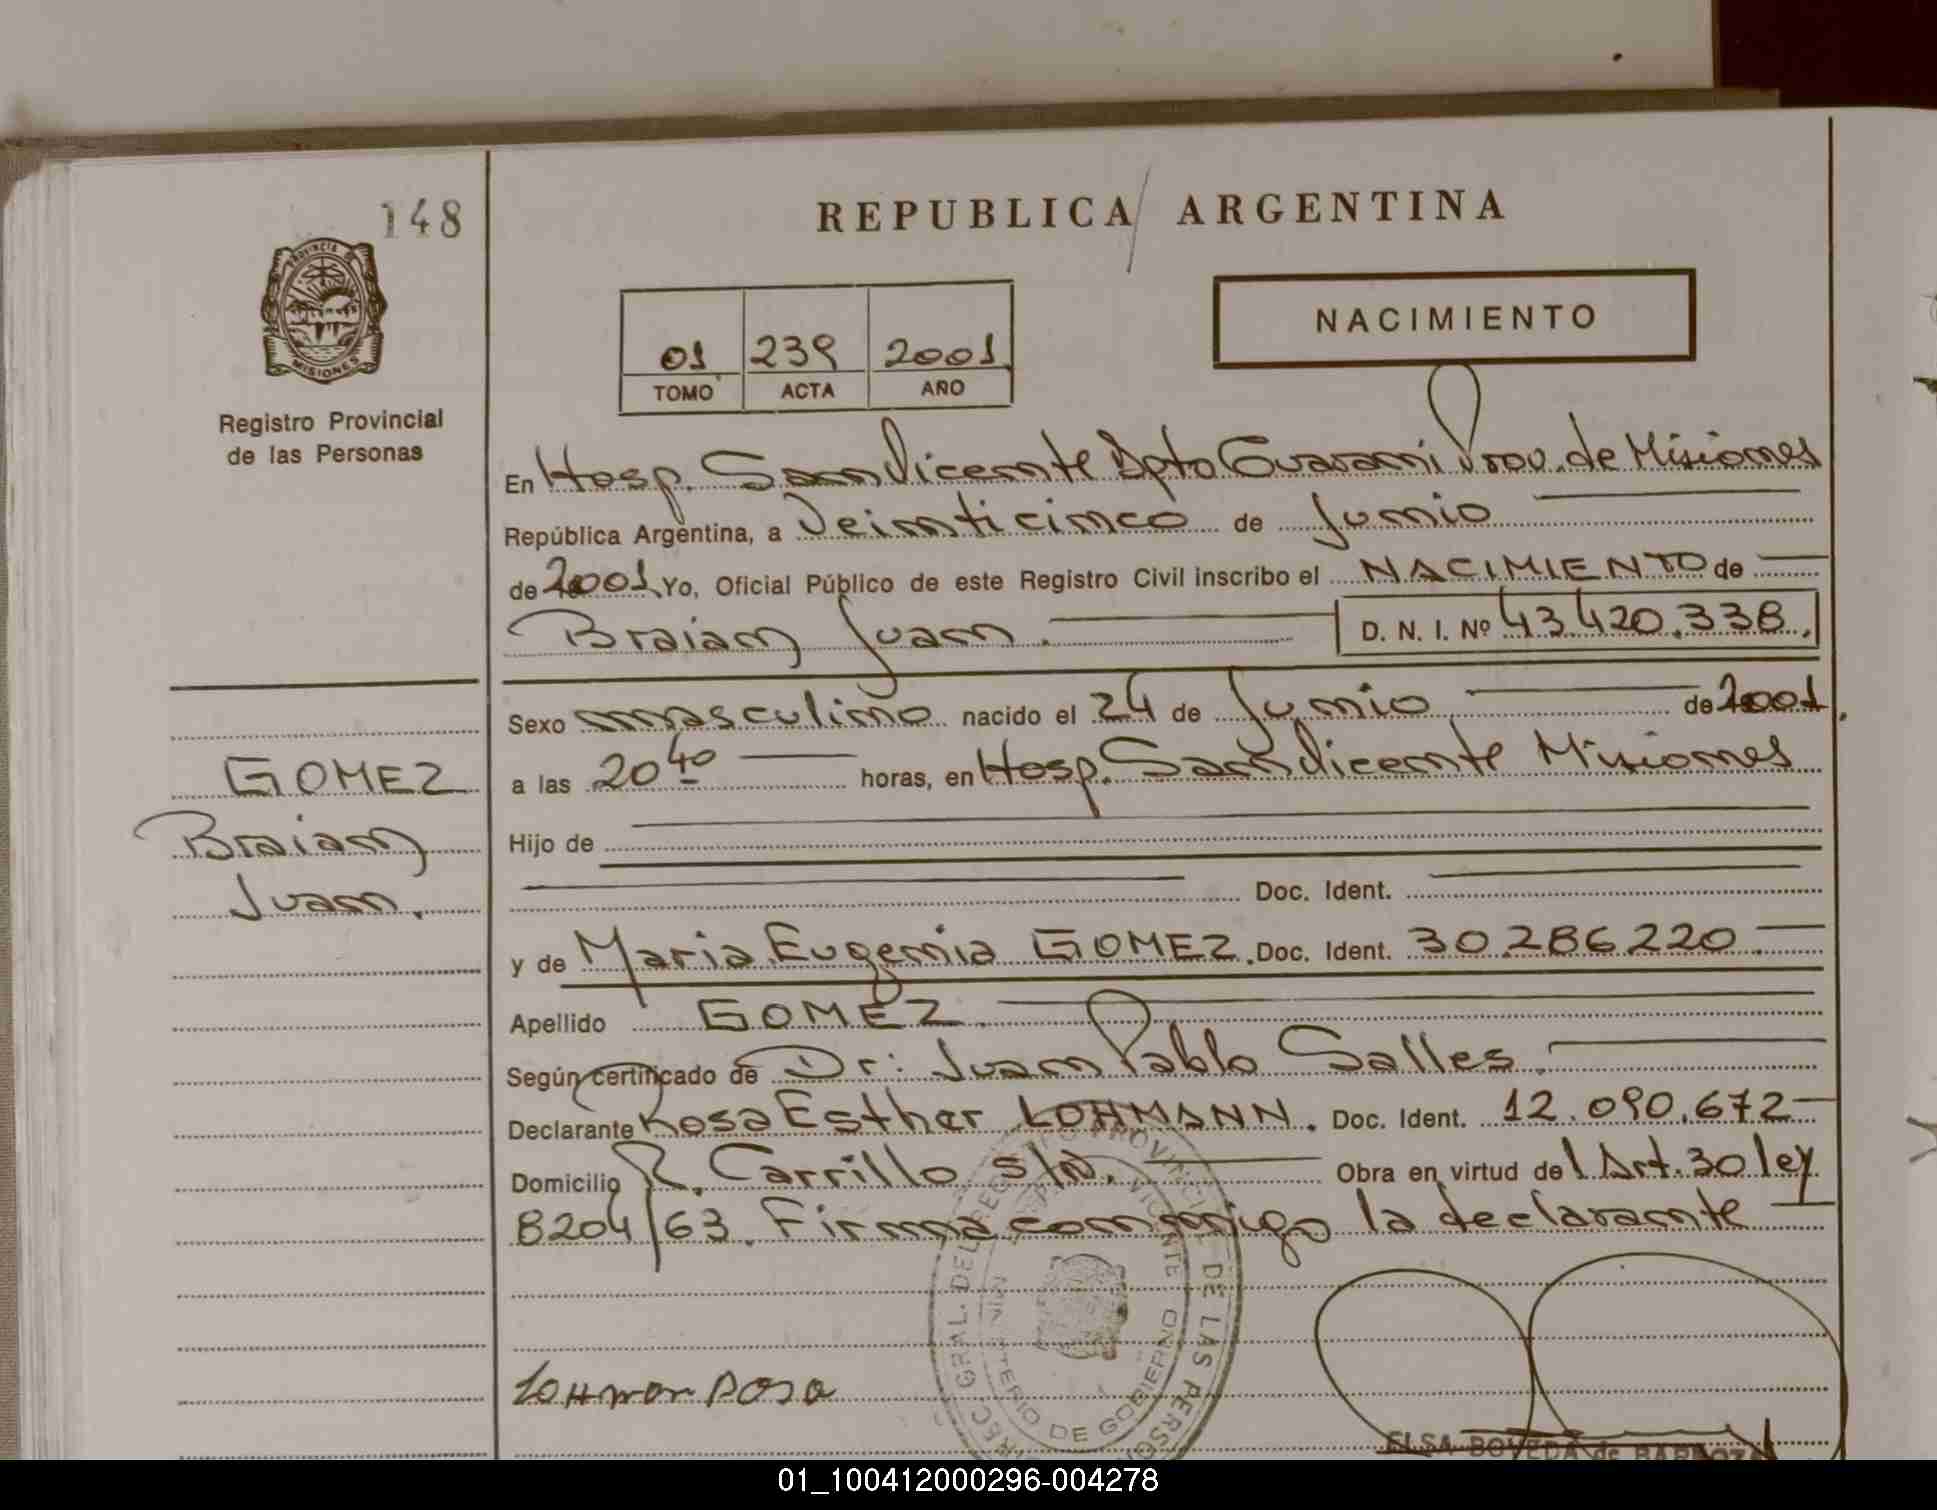 148
REPUBLICA ARGENTINA
PROVINCIA
MISIONES
01 239 2001
TOMO ACTA AÑO
NACIMIENTO
Registro Provincial
de las Personas
En Hosp. San Vicente Dpto Guarani Prov. de Misiones
República Argentina, a Veinticinco de Junio
de 2001 Yo, Oficial Público de este Registro Civil inscribo el NACIMIENTO de
Braian Juan. D. N. I. Nº 43.420.338.
Sexo masculino nacido el 24 de Junio de 2001.
a las 20 40 horas, en Hosp. San Vicente Misiones
GOMEZ
Braian
Juan.
Hijo de
Doc. Ident.
y de Maria Eugenia GOMEZ. Doc. Ident. 30.286.220
Apellido GOMEZ.
Según certificado de Dr: Juan Pablo Salles.
Declarante Rosa Esther LOHMANN. Doc. Ident. 12.090.672
Domicilio R. Carrillo s/N. Obra en virtud del Art. 30 ley
8204/63. Firma conmigo la declarante
DE LAS PERSO
GRAL. DEL REGISTRO PROVINCI
VICENTE
MINISTERIO DE GOBIERNO
Lohman Rosa
ELSA BOVEDA de BARBOZA
01_100412000296-004278